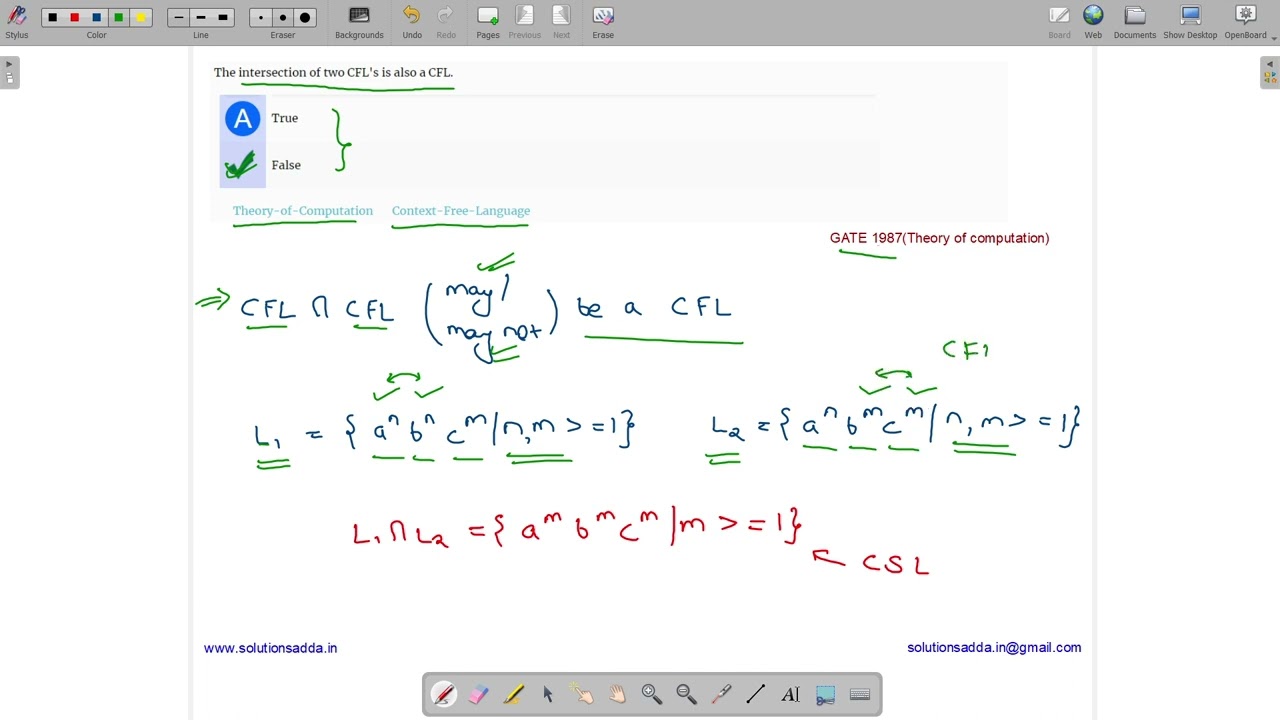 Stylus Color Line Eraser Backgrounds Undo Redo Pages Previous Next Erase Board Web Documents Show Desktop OpenBoard
The intersection of two CFL's is also a CFL.
A True
False
Theory-of-Computation Context-Free-Language
GATE 1987(Theory of computation)
CFL ∩ CFL (may/ may not) be a CFL
CFL
L₁ = {aⁿ bⁿ cᵐ | n,m >=1} L₂ = {aⁿ bᵐ cᵐ | n,m >=1}
L₁ ∩ L₂ = {aᵐ bᵐ cᵐ | m >=1}
← CSL
www.solutionsadda.in solutionsadda.in@gmail.com
AI